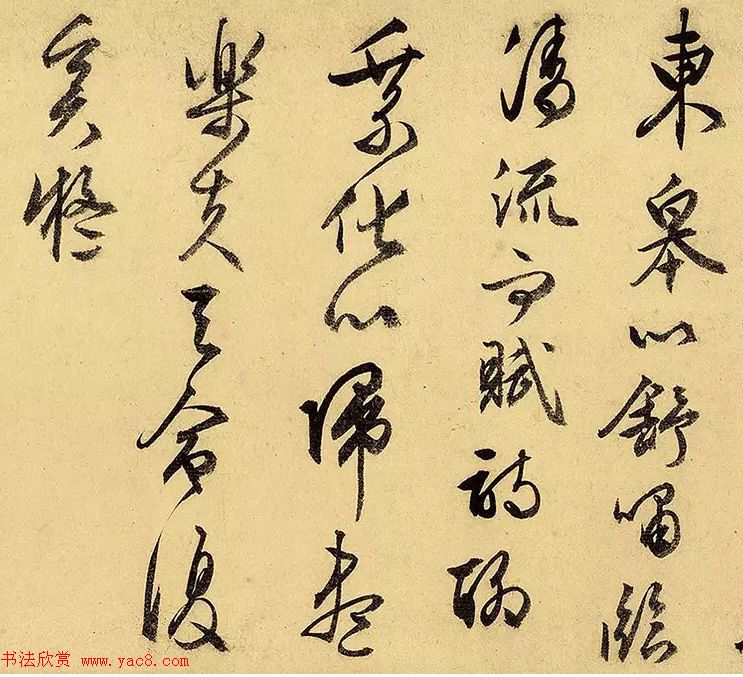 東皋以舒嘯臨
清流而賦詩聊
乘化以歸盡
樂夫天命復
奚疑
书法欣赏 www.yac8.com